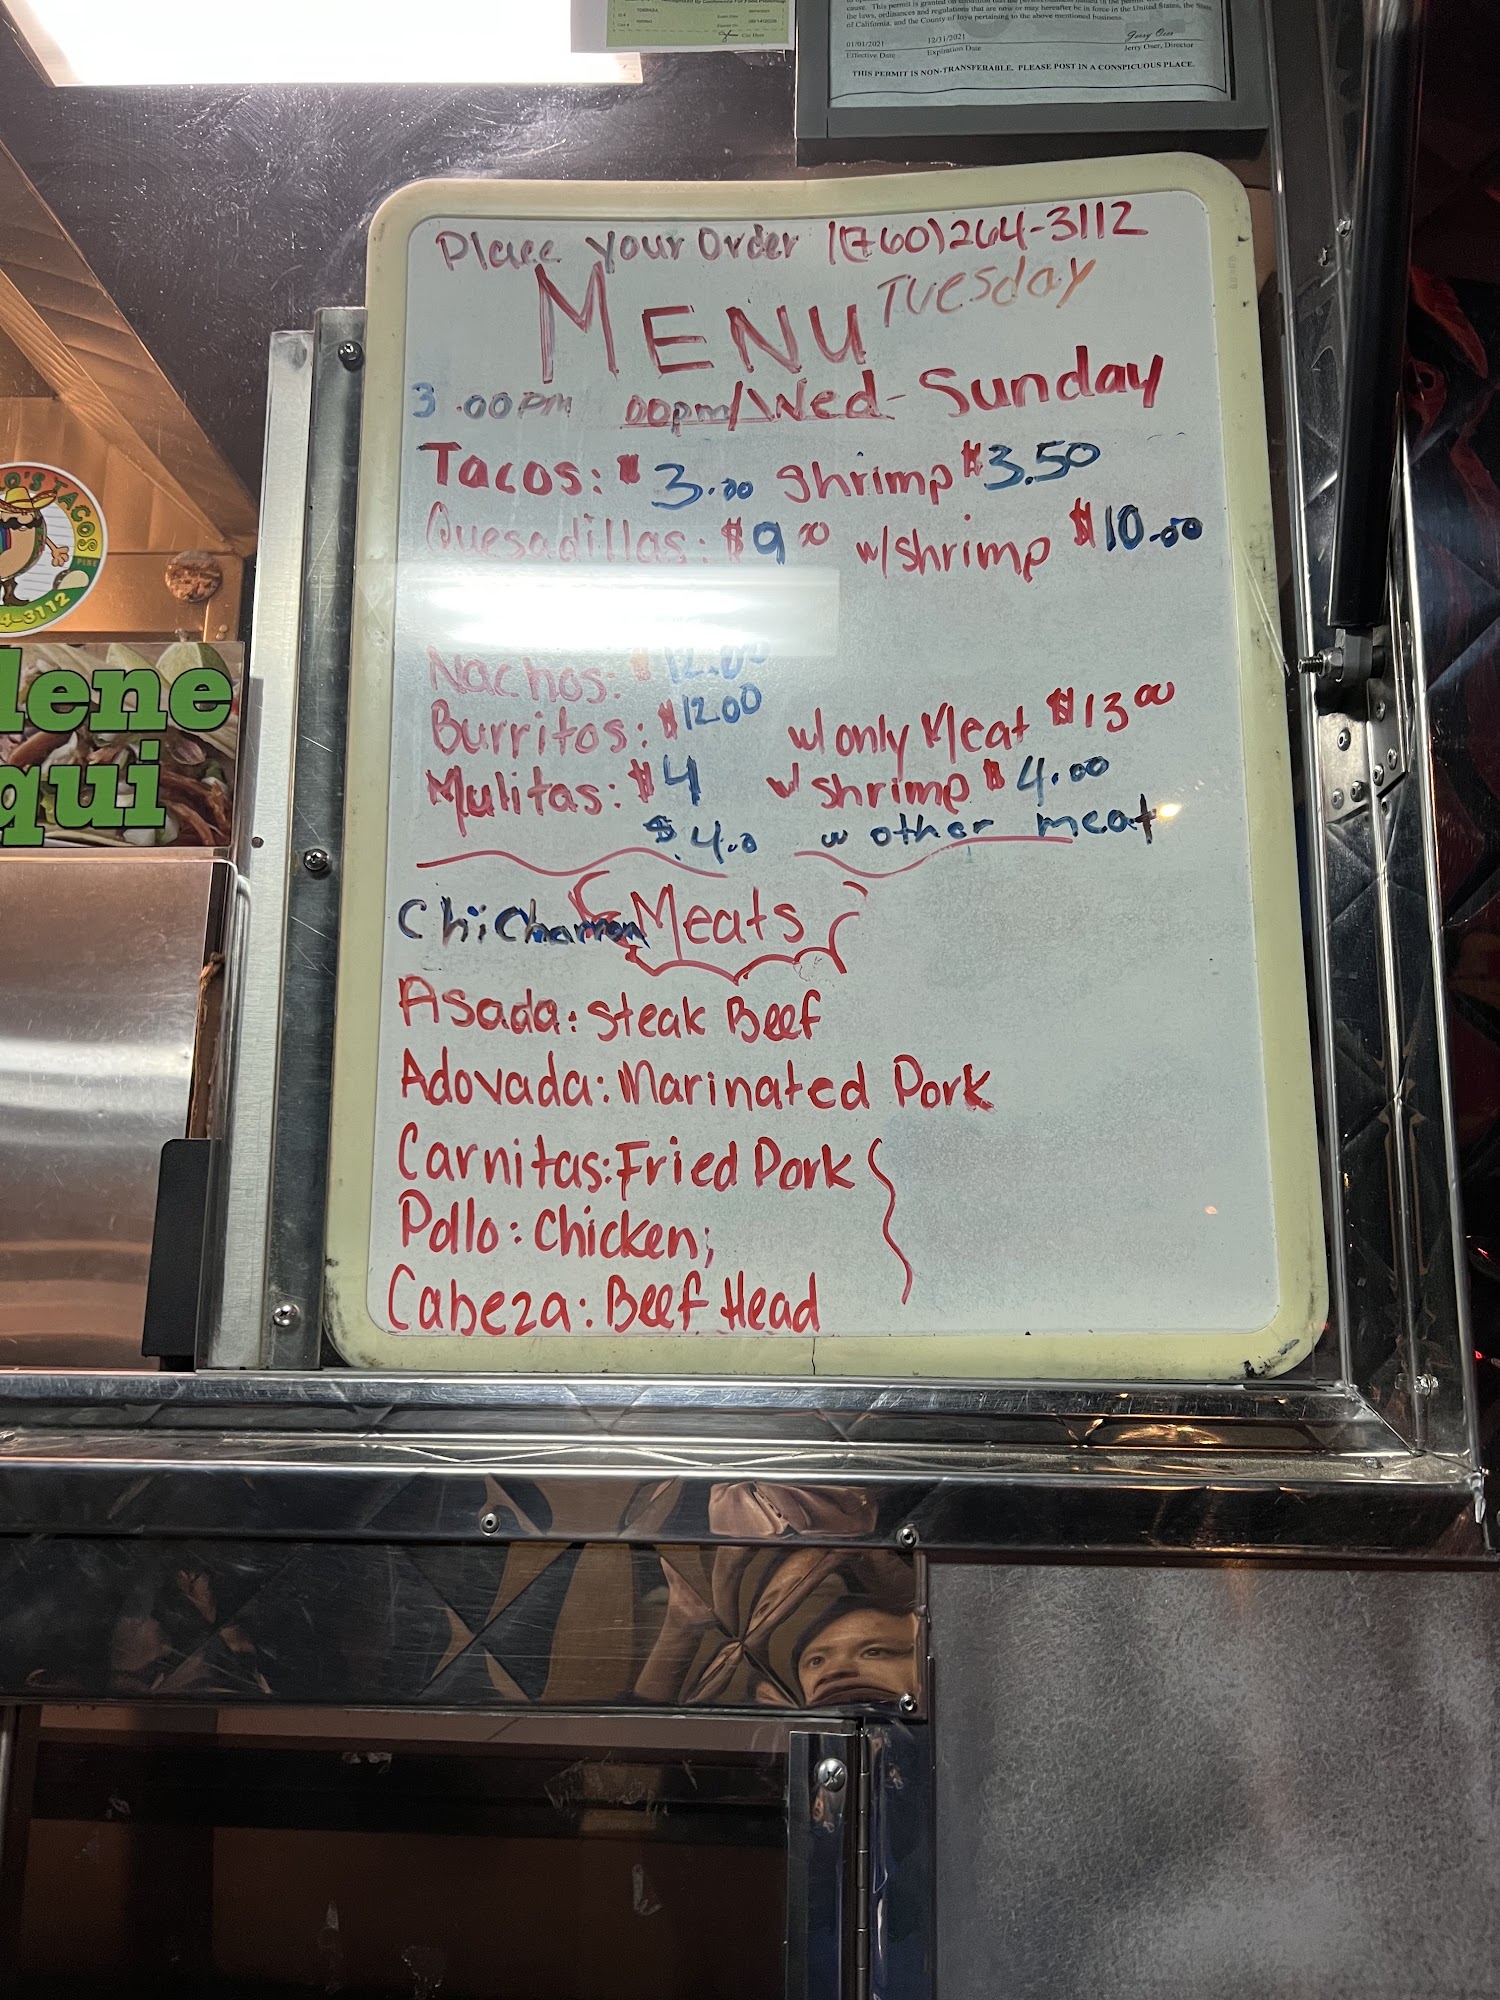 of California, and the County of Inyo pertaining to the above mentioned business.
01/01/2021 12/31/2021
Effective Date Expiration Date Jerry Oser, Director
THIS PERMIT IS NON-TRANSFERABLE. PLEASE POST IN A CONSPICUOUS PLACE.
Place Your Order 1(760)264-3112
MENU Tuesday
3.00pm 00pm/Wed-Sunday
Tacos: $3.00 Shrimp $3.50
Quesadillas: $9.00 w/shrimp $10.00
Nachos: $12.00
Burritos: $12.00 w/ only Meat $13.00
Mulitas: $4 w/ shrimp $4.00
$4.0 w other meat
Chicharron Meats
Asada: Steak Beef
Adovada: Marinated Pork
Carnitas: Fried Pork
Pollo: Chicken;
Cabeza: Beef Head
O'S TACOS
4-3112
lene
qui